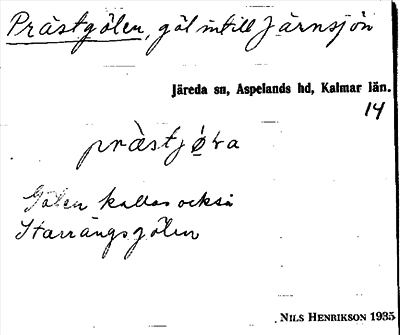 Prästgölen, göl intill Järnsjön
Järeda sn, Aspelands hd, Kalmar län.
14
Gölen kallas också
Starrängsgölen
NILS HENRIKSON 1935